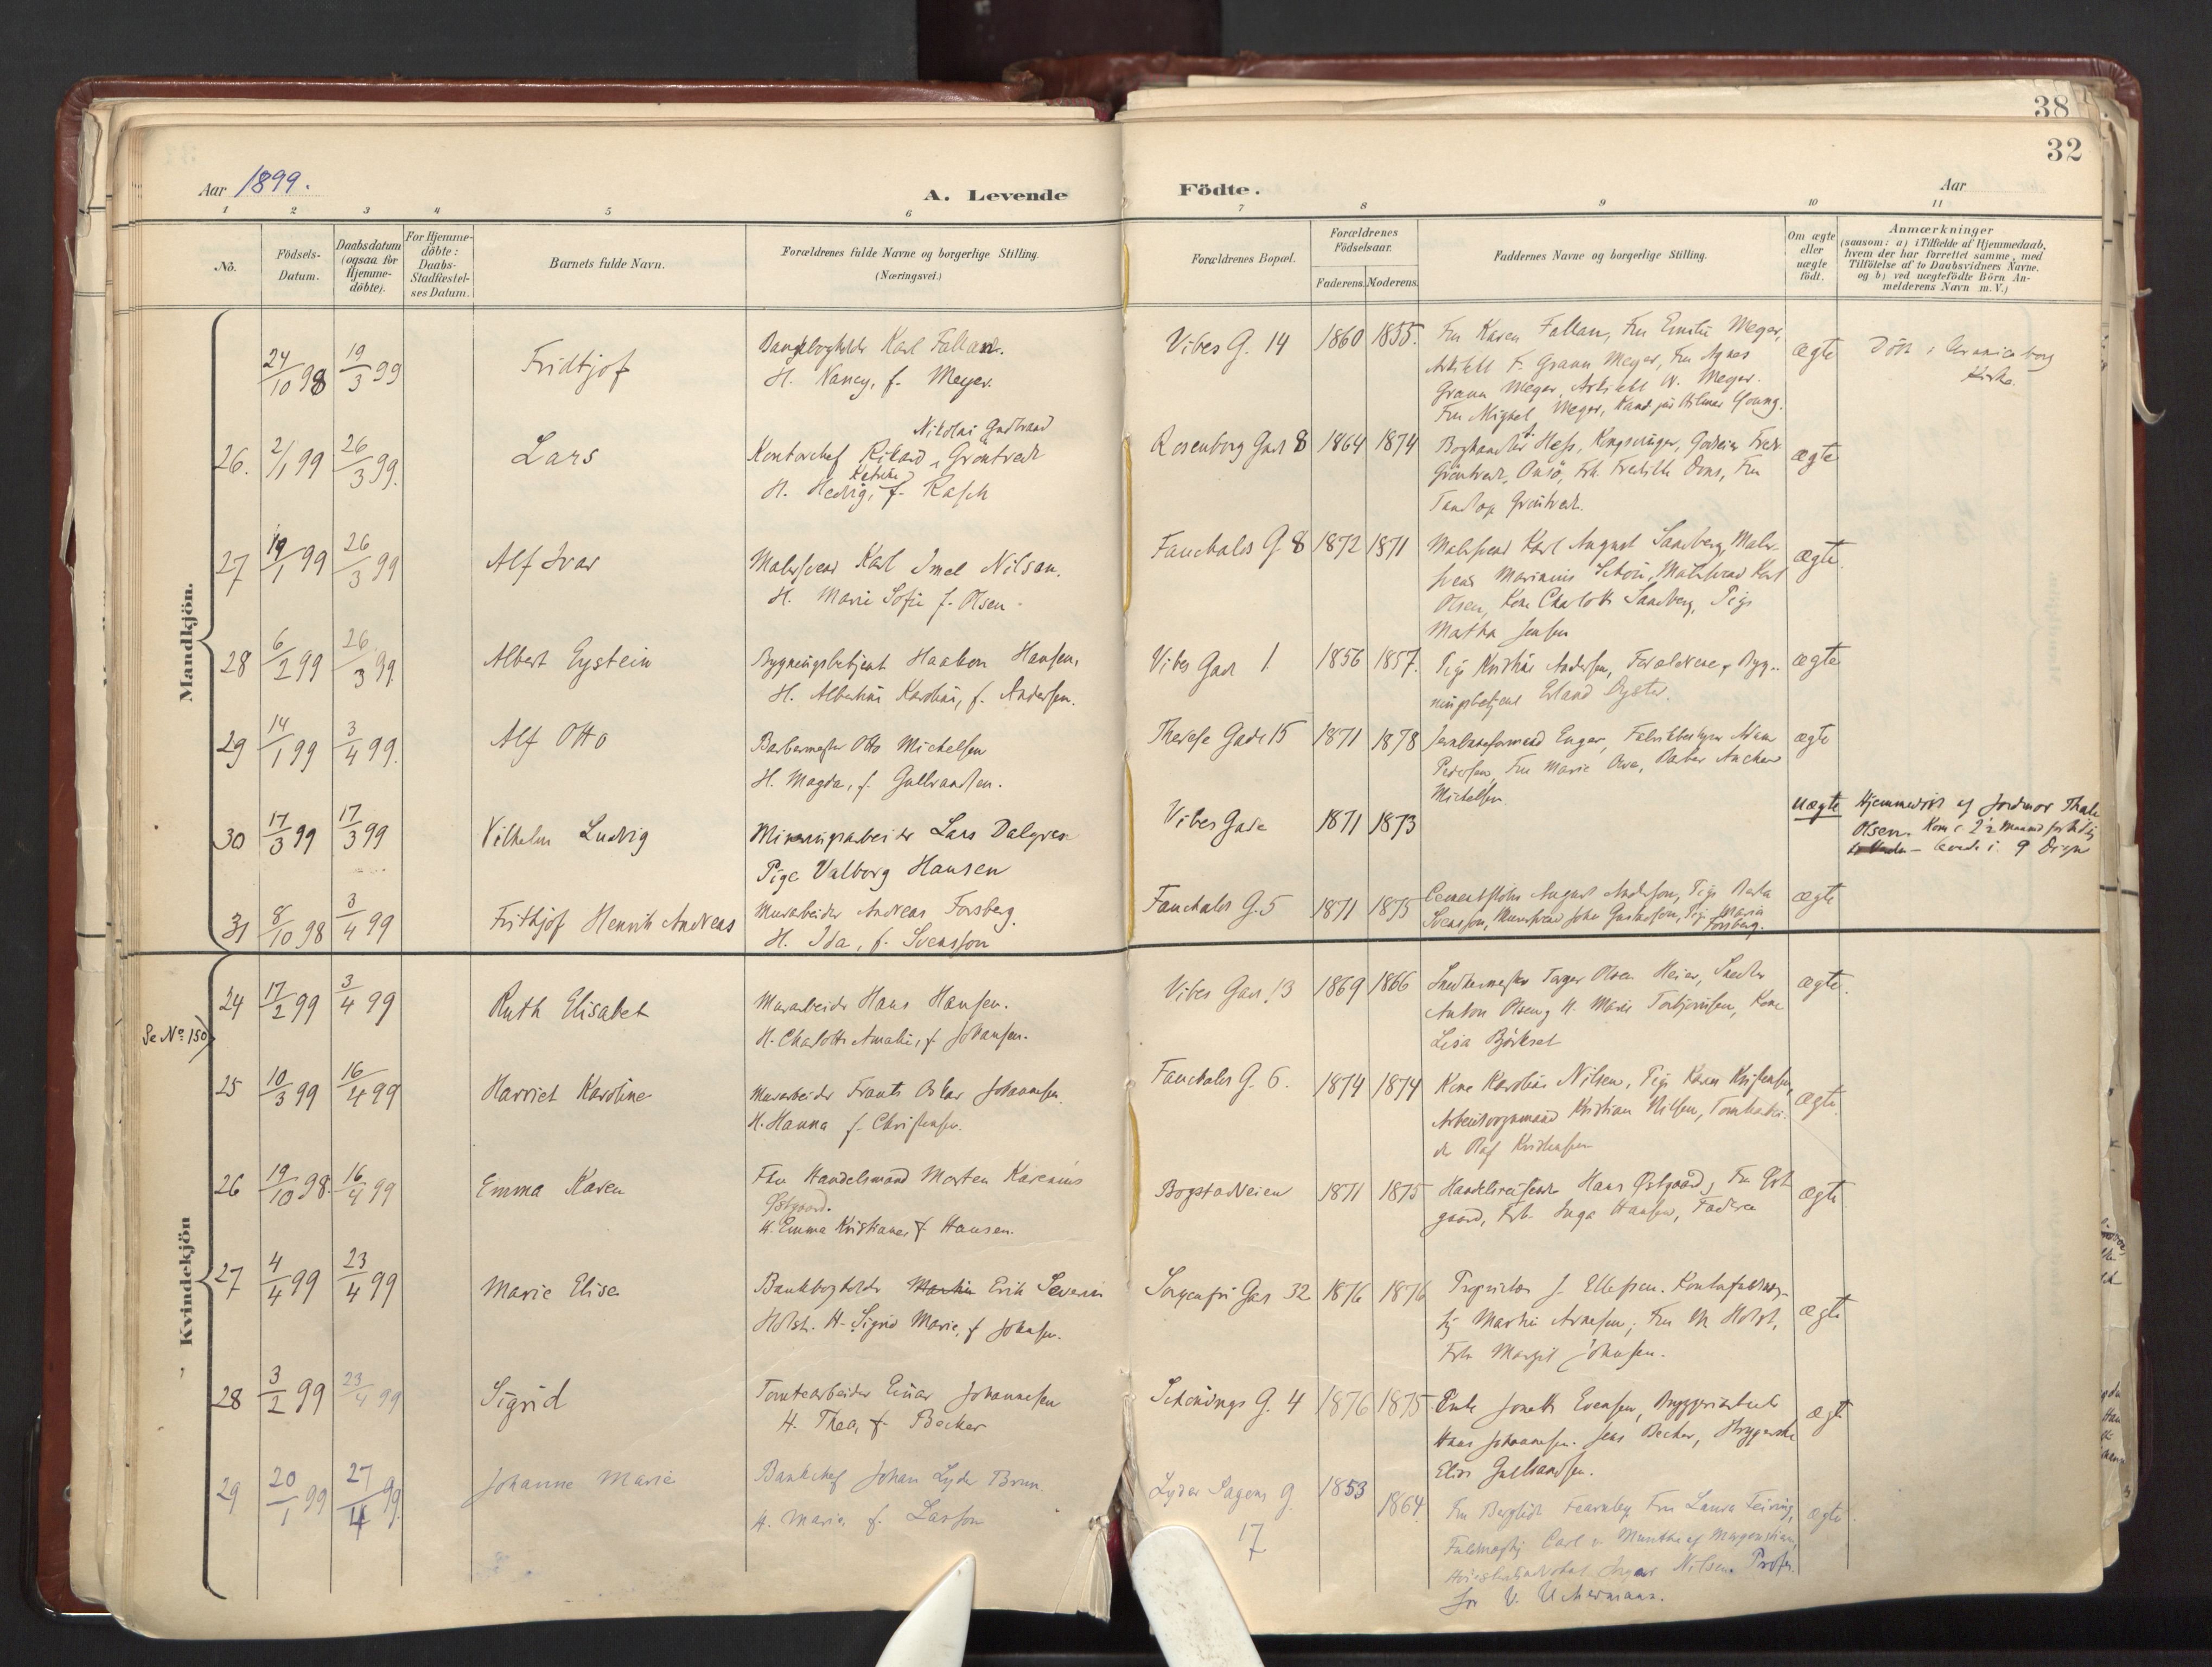 38
32
Aar 1899.
A. Levende
Födte.
Aar
1 2 3 4 5 6 7 8 9 10 11
No.
Födsels-
Datum.
Daabsdatum
(ogsaa for
Hjemme-
döbte).
For Hjemme-
döbte:
Daabs-
Stadfæstel-
ses Datum.
Barnets fulde Navn.
Forældrenes fulde Navne og borgerlige Stilling.
(Næringsvei.)
Forældrenes Bopæl.
Forældrenes
Födselsaar.
Faderens.
Moderens.
Faddernes Navne og borgerlige Stilling.
Om ægte
eller
uægte
födt.
Anmærkninger
(saasom: a) i Tilfælde af Hjemmedaab,
hvem der har forrettet samme, med
Tilföielse af to Daabsvidners Navne.
og b) ved uægtefödte Börn An-
melderens Navn m. V.)
Mandkjön.
24/10 98 19/3 99 Fridtjof
Karl Fallan.
H. Nancy, f. Meyer.
Vibes G. 14 1860 1855.
Fru Karen Fallan, Fru Emilie Meyer,
Arkitekt F. Grann Meyer, Fru Agnes
Grann Meyer, Arkitekt W. Meyer.
Meyer, Kand. jur Hilmar Young.
ægte
Döbt i
Kirke.
26. 2/1 99 26/3 99. Lars
Nikolai Gudbrand
Kontorchef Rikard Gröntvedt
Katrine
H. Hedvig, f. Rasch
Rosenborg Gad 8 1864 1874
Boghandler Hess, Kongsvinger,
Gröntvedt, Onsö, Frk. Fredikke Dons, Fru
Gröntvedt.
ægte
27 19/1 99 26/3 99 Alf Ivar
Malersvend Karl Imel Nilsen.
H. Marie Sofie f. Olsen
Fauchalds G. 8 1872 1871
Malersvend Karl August Sandberg, Maler-
svend Marinius Schou, Malersvend Karl
Olsen, Kone Charlotte Sandberg, Pige
Martha Jensen
ægte.
28 6/2 99 26/3 99. Albert Eystein
Bygningsbetjent Haakon Hansen,
H. Albertine Karoline, f. Andersen.
Vibes Gad 1 1856 1857.
Pige Kristine Andersen, Forældrene, Byg-
ningsbetjent Erland
ægte
29 14/1 99 3/4 99. Alf Otto
Barbermester Otto Michelsen
H. Magda, f. Gulbrandsen.
Therese Gade 15 1871 1878
Enger, Fabrikbestyrer
Pedersen, Fru Marie Barber Ancher
Michelsen.
ægte
30 17/3 99 17/3 99 Vilhelm Ludvig
Mineringsarbeider Lars Dalgren
Pige Valborg Hansen
Vibes Gade 1871 1873
uægte
Hjemmedöbt af Jordmor Thale
Olsen. Kom 2 1/2 Maaned for tidlig
levede i 9 Dage
31 8/10 98 3/4 99 Frithjof Henrik Andreas
Murarbeider Andreas Forsberg.
H. Ida, f. Svensson
Fauchalds G. 5 1871 1875
Cementstöber August Andersen, Pige Berta
Svensson, Mursvend John Gustafson, Pige Maria
Forsberg.
ægte
Kvindekjön
24 17/2 99 3/4 99 Ruth Elisabet
Murarbeider Hans Hansen.
H. Charlotte Amalie, f. Johansen.
Vibes Gad 13 1869 1866
Snedkermester Torger Olsen Heier, Snedker
Anton Olsen, H. Marie Torbjörnsen, Kone
Lisa Björkset
ægte.
Se No 150
25 10/3 99 16/4 99 Harriet Karoline
Murarbeider Frants Oskar Johannesen.
H. Hanna f. Christensen.
Fauchalds G. 6. 1874 1874
Kone Karoline Nilsen, Pige Karen Kristensen,
Arbeidsformand Kristian Nilsen, Tomtearbei-
der Olaf Kristensen
ægte.
26 19/10 98. 16/4 99 Emma Karen
Fhv Handelsmand Morten Karenius
Östgaard.
H. Emma Kristiane, f Hansen.
Bogstadveien 1871 1875
Handelsreisende Hans Östgaard, Fru Öst-
gaard, Frk. Inga Hansen, Faderen
ægte
27 4/4 99 23/4 99 Marie Elise
Bankbogholder Erik Severin
Holst. H. Sigrid Marie, f Johnsen.
Sorgenfri Gad 32 1876 1876
Proprietær J. Ellefsen. Kontorfuldmæg-
tig Martin Arnesen, Fru M Holst,
Frk Margit Johnsen.
ægte
28 3/2 99 23/4 99 Sigrid
Tomtearbeider Einar Johannesen
H. Thea, f. Becker
Schönings G. 4 1876 1875
Enke Jonette Evensen, Bryggeriarbeider
Hans Johannesen. Jens Becker,
Elise Gulbrandsen.
ægte
29 20/1 99 27/4 99. Johanne Marie
Bankchef Johan Lyder Brun.
H. Marie f. Lasson
Lyder Sagens G. 17 1853 1864
Fru Bergliot Fearnley Fru Laura
Fuldmægtig Carl v. Munthe af Morgenstierne,
Nilsen. Profes-
sor V. Uchermann.
ægte